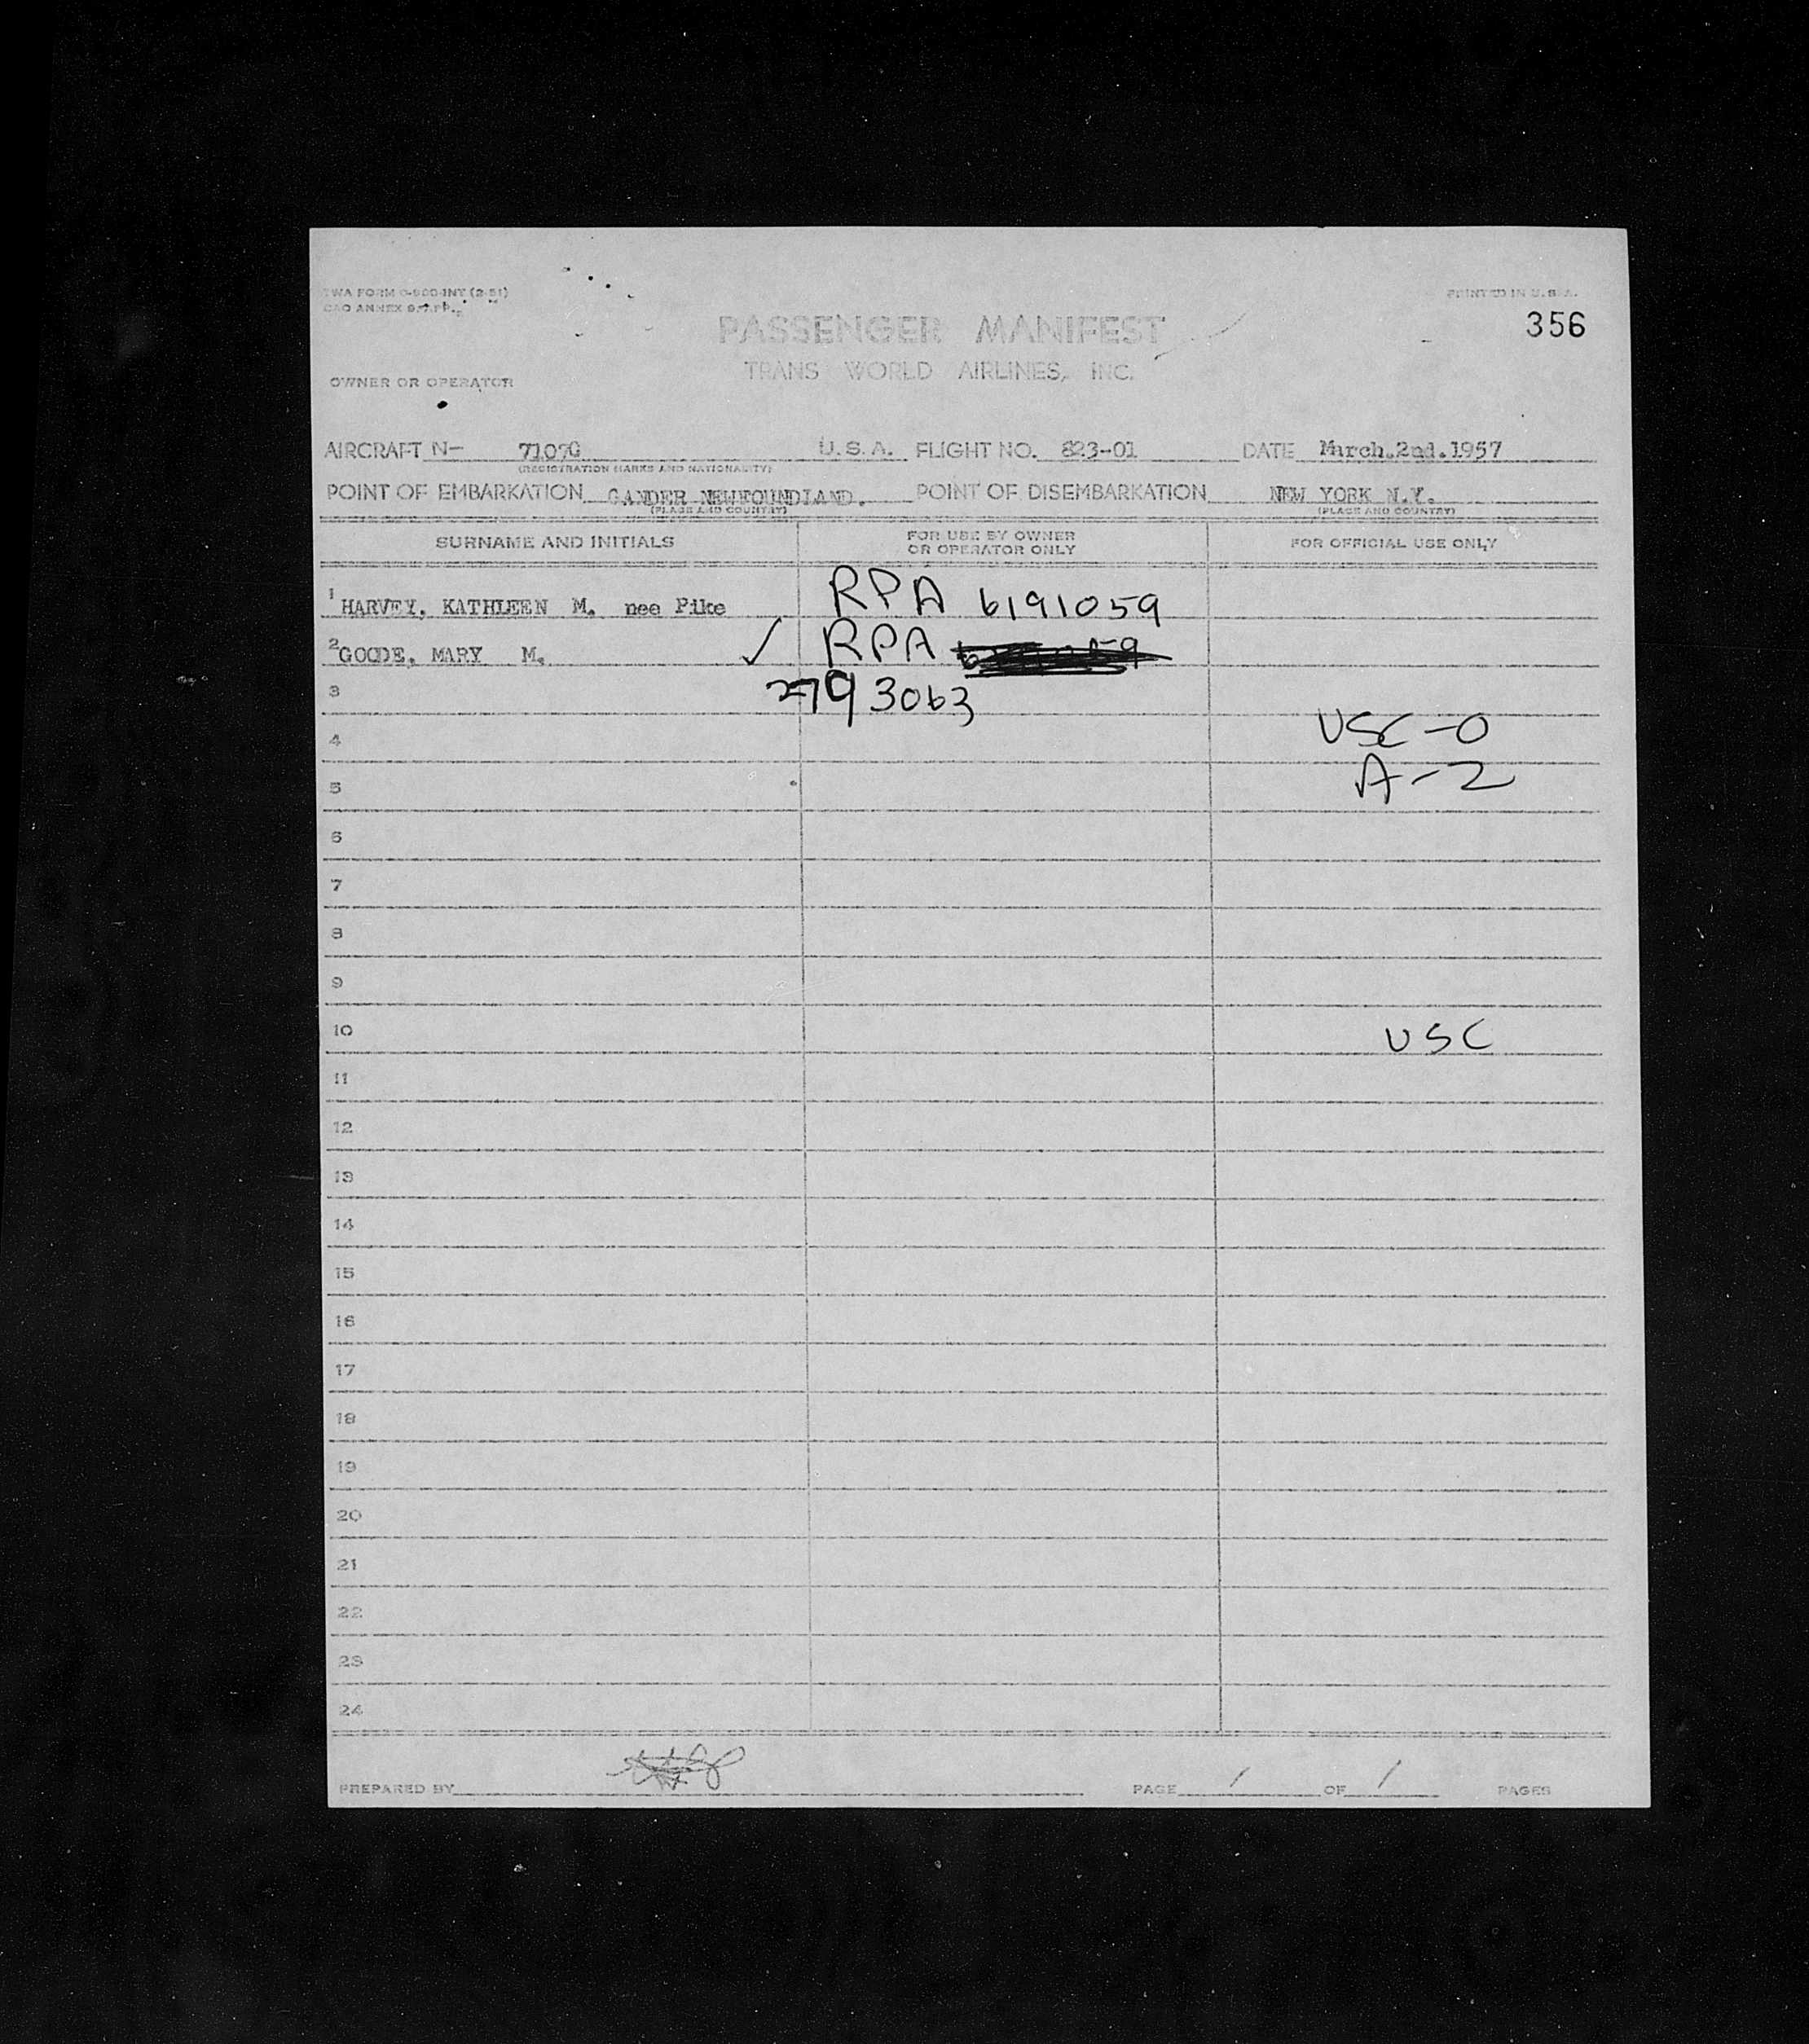 TWA FORM O-900-INT (2-51)
PRINTED IN U.S.A.
CAO ANNEX 9-APP.
356
PASSENGER MANIFEST
TRANS WORLD AIRLINES, INC.
OWNER OR OPERATOR
AIRCRAFT N- 7107G U.S.A. FLIGHT NO. 823-01 DATE March.2nd.1957
(REGISTRATION MARKS AND NATIONALITY)
POINT OF EMBARKATION GANDER NEWFOUNDLAND. POINT OF DISEMBARKATION NEW YORK N.Y.
(PLACE AND COUNTRY) (PLACE AND COUNTRY)
SURNAME AND INITIALS FOR USE BY OWNER OR OPERATOR ONLY FOR OFFICIAL USE ONLY
1 HARVEY, KATHLEEN M. nee Pike RPA 6191059
2 GOODE, MARY M. ✓ RPA
3 2793063
4 USC-0
5 A-2
6
7
8
9
10 USC
11
12
13
14
15
16
17
18
19
20
21
22
23
24
PREPARED BY PAGE 1 OF 1 PAGES